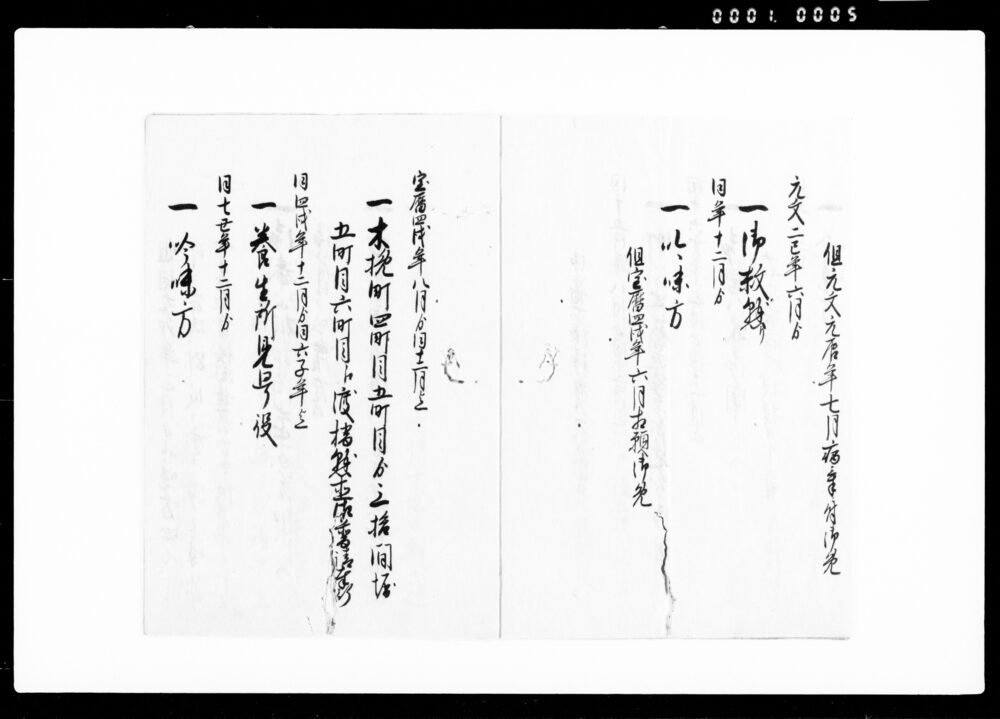 0001. 0005
但元文元辰年七月病気ニ付御免
元文二巳年六月ゟ
一御救懸り
同年十二月ゟ
一吟味方
但宝暦四戌年六月相願御免
宝暦四戌年八月ゟ同十一月迄
一木挽町四町目五町目ゟ三拾間堀
五町目六町目江渡橋懸直
同四戌年十二月ゟ同六子年迄
一養生所見廻役
同七丑年十二月ゟ
一吟味方